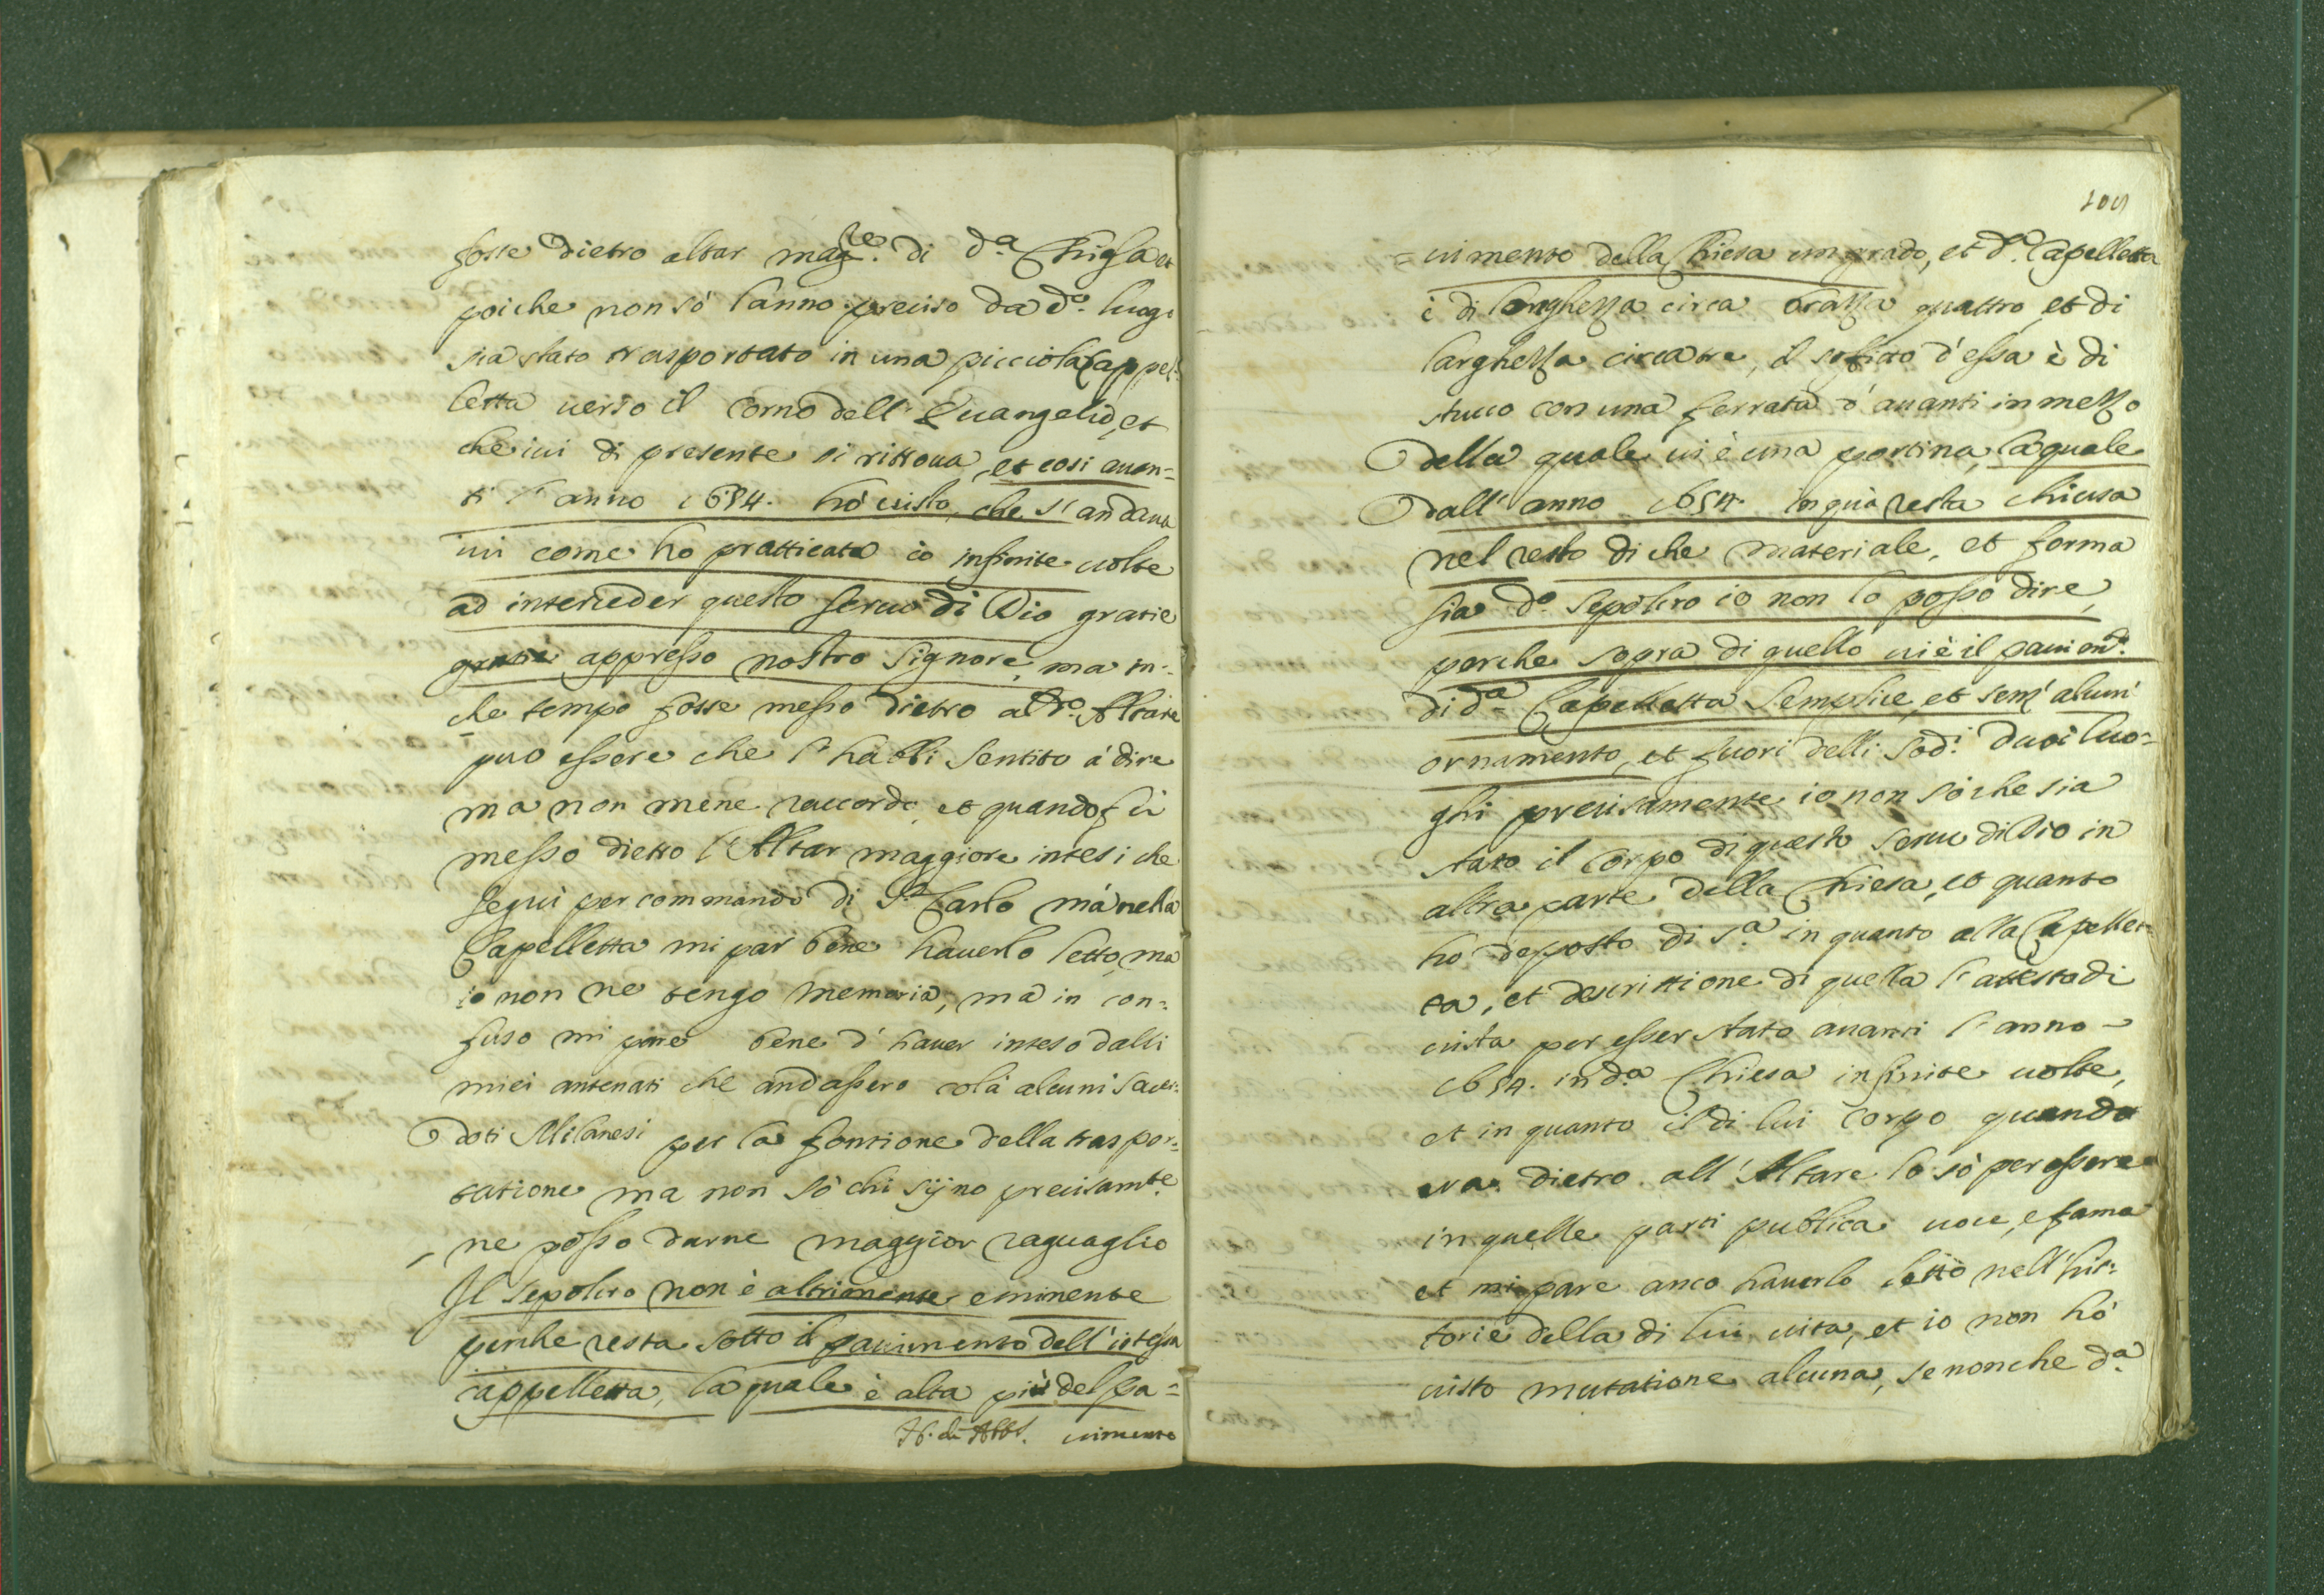 fosse dietro altar mag.re di d.a Chiesa et
poi che non sò l'anno preciso da d.o luogo
sia stato trasportato in una picciola Cappel=
letta uerso il Corno dell'Euangelio, et
che iui di presente si ritroua, et cosi auan=
ti l'anno 1654. hò uisto, che s'andaua
iui come hò pratticato io infinite uolte
ad interceder questo seruo di Dio gratie
appresso nostro Signore, ma in=
che tempo fosse messo dietro al d.o Altare
puo essere che l'habbi sentito à dire
ma non mene raccordo, et quando fù
messo dietro l'Altar maggiore intesi che
seguì per commando di S.t Carlo mà nella
Capelletta mi par bene hauerlo letto, ma
io non ne tengo memoria, mà in con=
fuso mi pare bene d'hauer inteso dalli
miei antenati che andassero colà alcuni Sacer=
doti Milanesi per la fontione della traspor=
tatione ma non sò chi sijno precisam.te
ne posso darne maggior raguaglio
Il sepolcro non è altrimente eminente
perche resta sotto il pauimento dell'istessa
cappelletta, la quale è alta più del pa=
uimento
105
=uimento della Chiesa un grado, et d.a Capelletta
è di longhezza circa brazza quattro et di
larghezza circa tre, il soffitto d'essa è di
stucco con una ferrata d'auanti in mezzo
della quale ui è una portina, la quale
dall'anno 1654. in quà resta chiusa
nel resto di che materiale, et forma
sia d.o Sepolcro io non lo posso dire,
perche sopra di quello ui è il pauim.to
di d.a Capelletta semplice, et senz'alcun
ornamento, et fuori delli sod.i duoi luo=
ghi precisamente io non sò che sia
stato il Corpo di questo seruo di Dio in
altra parte della Chiesa, et quanto
hò deposto di s.a in quanto alla Capellet=
ta, et descrittione di quella l'attesto di
uista per esser stato auanti l'anno
1654. in d.a Chiesa infinite uolte,
et in quanto il di lui Corpo quando
era dietro all'Altare lo sò per essere
in quelle parti publica uoce, e fama
et mi pare anco hauerlo letto nell'his=
torie della di lui uita, et io non hò
uisto mutatione alcuna, se non che d.a